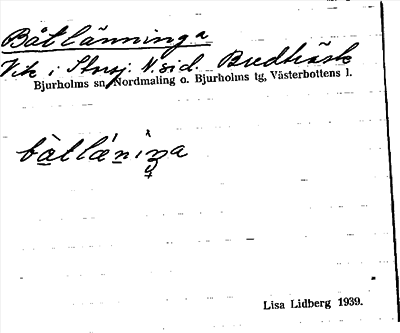 Båtlänninga
Vik i Storsj. N.sid. Bredträsk
Bjurholms sn, Nordmaling o. Bjurholms tg, Västerbottens l.
bàtlǽniŋa
Lisa Lidberg 1939.